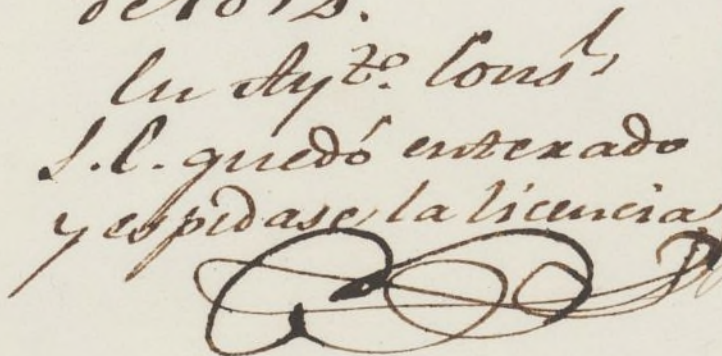 En Ayto. Consl.
S.E. quedó enterado
y espidase la licencia